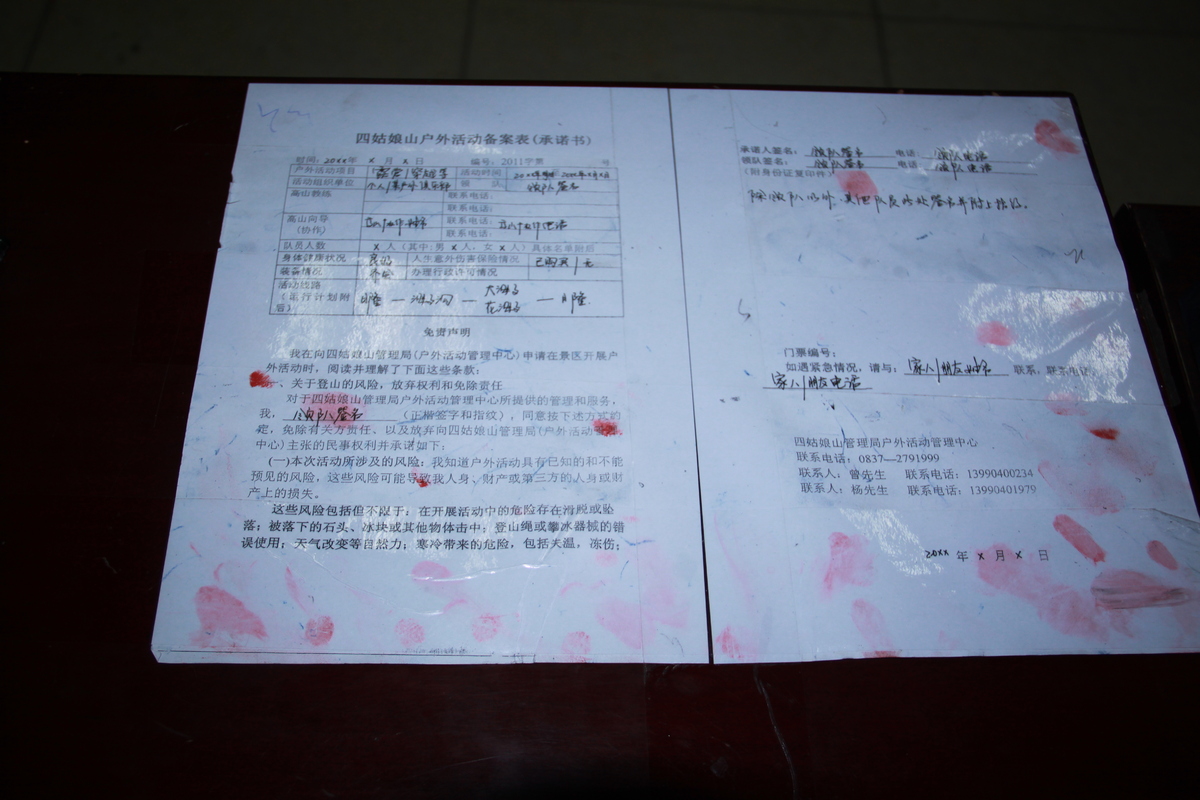 四姑娘山户外活动备案表(承诺书)
时间:20xx年 x 月 x 日 编号:2011字第 号
户外活动项目 露营/穿越等 活动时间 20xx年
活动组织单位 个人/某户外俱乐部 领 队 领队签名
高山教练 联系电话:
联系电话:
高山向导 联系电话:
(协作) 联系电话:
队员人数 x 人(其中:男 x 人,女 x 人)具体名单附后
身体健康状况 良好 人生意外伤害保险情况 已购买/无
装备情况 齐全 办理行政许可情况
活动线路
(正行计划附后) 日隆 — 海子沟 — 大海子 花海子 — 日隆
免责声明
我在向四姑娘山管理局(户外活动管理中心)申请在景区开展户
外活动时,阅读并理解了下面这些条款:
一、关于登山的风险,放弃权利和免除责任
对于四姑娘山管理局户外活动管理中心所提供的管理和服务,
我, 领队签名 (正楷签字和指纹),同意按下述方式约
定,免除有关方责任、以及放弃向四姑娘山管理局(户外活动管理
中心)主张的民事权利并承诺如下:
(一)本次活动所涉及的风险:我知道户外活动具有已知的和不能
预见的风险,这些风险可能导致我人身、财产或第三方的人身或财
产上的损失。
这些风险包括但不限于:在开展活动中的危险存在滑脱或坠
落;被落下的石头、冰块或其他物体击中;登山绳或攀冰器械的错
误使用;天气改变等自然力;寒冷带来的危险,包括失温,冻伤;
承诺人签名: 领队签名 电话 领队电话
领队签名: 领队签名 电话 领队电话
(附身份证复印件)
除领队以外,其他队员此处签名并附上指纹。
门票编号:
如遇紧急情况,请与: 家人/朋友姓名 联系,联系电话
家人/朋友电话
四姑娘山管理局户外活动管理中心
联系电话:0837—2791999
联系人:曾先生 联系电话:13990400234
联系人:杨先生 联系电话:13990401979
20xx 年 x 月 x 日